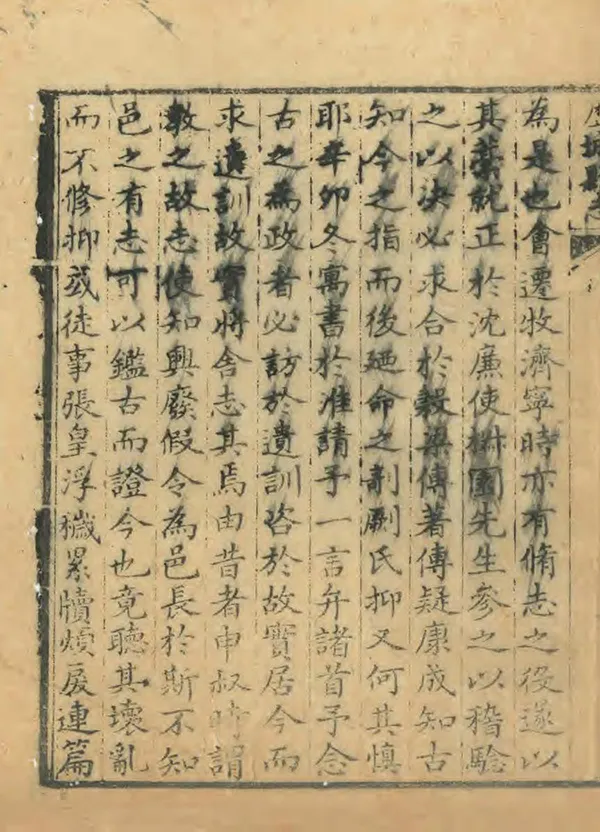 城縣志
為是也會遷牧濟寧時亦有脩志之役遂以
其藁就正於沈廉使椒園先生參之以稽驗
之以決必求合於穀梁傳著傳疑康成知古
知今之指而後廼命之剞劂氏抑又何其慎
耶辛卯冬寓書於淮請予一言弁諸首予念
古之為政者必訪於遺訓咨於故實居今而
求遺訓故實將舍志其焉由昔者申叔時謂
教之故志使知興廢假令為邑長於斯不知
邑之有志可以鑑古而證今也竟聽其壞亂
而不修抑或徒事張皇浮穢累牘煩連篇